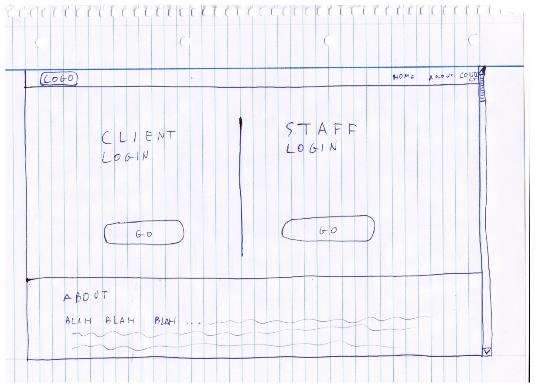 LOGO
HOME ABOUT CONTACT
CLIENT
LOGIN
STAFF
LOGIN
GO
GO
ABOUT
BLAH BLAH BLAH ...